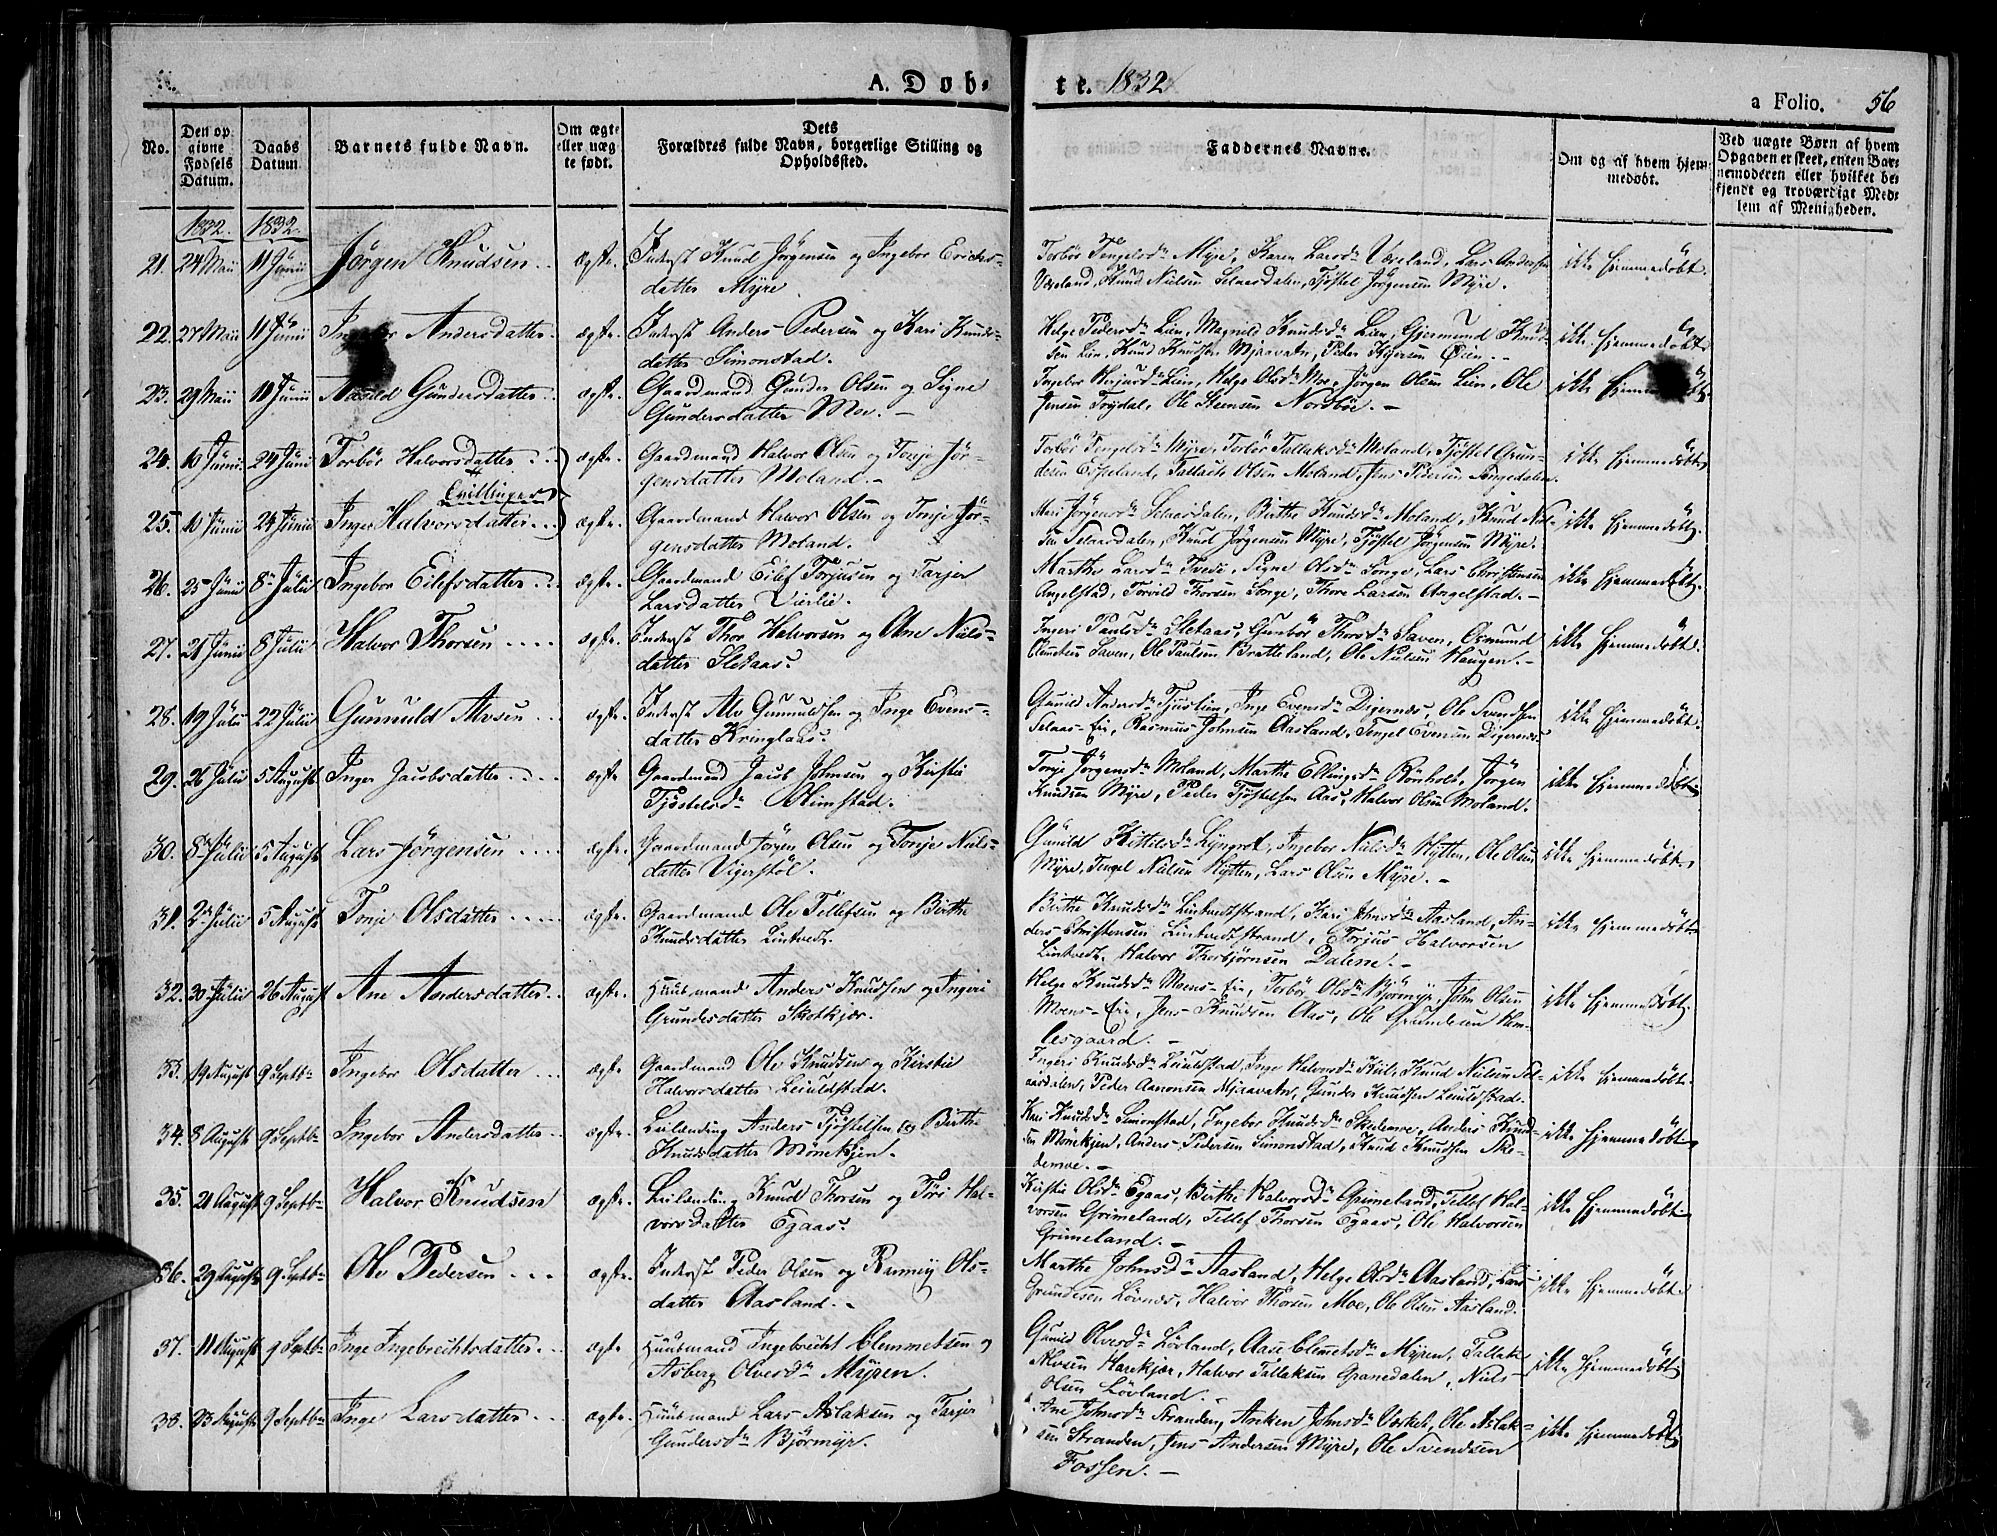 A. Døb-
te. 1832
a Folio. 56
No.
Den op-
givne
Fødsels
Datum.
Daabs
Datum.
Barnets fulde Navn.
Om ægte
eller uæg-
te født.
Dets
Forældres fulde Navn, borgerlige Stilling og
Opholdssted.
Faddernes Navne.
Om og af hvem hjem-
medøbt.
Ved uægte Børn af hvem
Opgaven er skeet, enten Bar-
nemoderen eller hvilket be-
kjendt og troværdigt Med-
lem af Menigheden.
1832. 1832.
21. 24 Maii 11 Junii Jörgen Knudsen ægte. Inderst Knud Jörgensen og Ingebor Erichs-
datter Myre.
Torbör Tengelsd. Myre, Karen Larsd. Væreland, Lars Andersen
Væreland, Knud Nielsen Selaasdalen, Tjöstel Jörgensen Myre.
ikke hjemmedöbt.
22. 27 Maii 11 Junii Ingebor Andersdatter ægte. Inderst Anders Pedersen og Kari Knuds-
datter Simonstad.
Helge Pedersd. Lien, Magnild Knudsd. Lien, Gjermund Knud-
sen Lien, Knud Knudsen Mjaavatn, Peder
ikke hjemmedöbt
23. 29 Maii 10 Junii Aasild Gundersdatter ægte. Gaardmand Gunder Olsen og Signe
Gundersdatter Moe.
Ingebor Lien, Helge Olsd. Moe, Jörgen Olsen Lien, Ole
Jensen Ole Steensen Nordböe.
ikke hjemmedöbt
24. 10 Junii 24 Juni Torbör Halvorsdatter ægte. Gaardmand Halvor Olsen og Tonje Jör-
gensdatter Moland.
Torbör Tengelsd. Myre, Torbör Tallaksd. Moland, Tjöstel Grun-
desen Eppeland, Tallak Olsen Moland, Jens Pedersen Songedalen.
ikke hjemmedöbt
Tvillinger
25. 10 Junii 24 Junii Inger Halvorsdatter ægte. Gaardmand Halvor Olsen og Tonje Jör-
gensdatter Moland.
Mari Jörgensd. Selaasdalen, Birthe Knudsd. Moland, Knud Niel-
sen Selaasdalen, Knud Jörgensen Myre, Tjöstel Jörgensen Myre.
ikke hjemmedöbt
26. 25 Junii 8 Julii Ingebor Eilefsdatter ægte. Gaardmand Eilef Torjusen og Tarjer
Larsdatter Vierlie.
Marthe Larsd. Tvede, Signe Olsd. Songe, Lars Christensen
Angelstad, Torvild Thorsen Songe, Thore Larsen Angelstad.
ikke hjemmedöbt.
27. 21 Junii 8 Julii Halvor Thorsen ægte. Inderst Thor Halvorsen og Ane Niels-
datter Sletaas.
Ingeri Paulsd. Sletaas, Gunbör Thorsd. Saven, Osmund
Clemetsen Saven, Ole Paulsen Bratteland, Ole Nielsen Haugen.
ikke hjemmedöbt.
28. 19 Julii 22 Julii Gunnuld Alvsen ægte. Inderst Alv Gunnuldsen og Inge Evens-
datter Kringlaas.
Gunild Andersd. Tjuslien, Inge Evensd. Digernes, Ole Svendsen
Selaas-Eie, Rasmus Johnsen Aasland, Tengel Evensen Digernes.
ikke hjemmedöbt.
29. 26 Julii 5 August Inger Jacobsdatter ægte Gaardmand Jacob Johnsen og Kirstie
Tjöstelsd. Simstad.
Tonje Jörgensd. Moland, Marthe Ellingsd. Rönholt, Jörgen
Knudsen Myre, Peder Tjöstelsen Aas, Halvor Olsen Moland.
ikke hjemmedöbt
30. 8 Julii 5 August Lars Jörgensen ægte. Gaardmand Jörgen Olsen og Tonje Niels-
datter Vigerstöl.
Gunild Kittilsd. Lyngrot, Ingebor Nielsd. Hytten, Ole Olsen
Myre, Tengel Nielsen Hytten, Lars Olsen Myre.
ikke hjemmedöbt
31. 2 Julii 5 August Tonje Olsdatter ægte. Gaardmand Ole Tellefsen og Birthe
Knudsdatter Lintvedt.
Birthe Knudsd. Lintvedtstrand, Kari Johnsd. Aasland, An-
ders Christensen Lintvedtstrand, Torjus Halvorsen
Lintvedt, Halvor Thorbjörnsen Dalene.
ikke hjemmedöbt
32. 30 Julii 26 August Ane Andersdatter ægte. Huusmand Anders Knudsen og Ingeri
Grundesdatter Skotkjær.
Helge Knudsd. Moens-Eie, Torbör Olsd. Björmyr, John Olsen
Moens-Eie, Jens Knudsen Aas, Ole Grundesen Ham-
lesgaard.
ikke hjemmedöbt.
33. 19 August 9 Septb. Ingebor Olsdatter ægte Gaardmand Ole Knudsen og Kirstie
Halvorsdatter Leiuldstad.
Ingeri Knudsd. Leiuldstad, Inge Halvorsd. Kiile, Knud Nielsen Sel-
aasdalen, Peder Aanonsen Mjaavatn, Gunder Knudsen Leiuldstad.
ikke hjemmedöbt.
34. 8 August 9 Septb. Ingebor Andersdatter ægte. Leilending Anders Tjöstelsen og Birthe
Knudsdatter Mönekjen.
Kari Knudsd. Simonstad, Ingebor Knudsd. Skedemoe, Anders Knud-
sen Mönekjen, Anders Pedersen Simonstad, Knud Knudsen Ske-
demoe.
ikke hjemmedöbt
35. 21 August 9 Septb. Halvor Knudsen ægte. Leilending Knud Thorsen og Töri Hal-
vorsdatter Egaas.
Kirstie Olsd. Egaas, Birthe Halvorsd. Grimeland, Tellef Hal-
vorsen Grimeland, Tellef Thorsen Egaas, Ole Halvorsen
Grimeland.
ikke hjemmedöbt
36. 29 August 9 Septb. Ole Pedersen ægte. Inderst Peder Olsen og Rannej Ols-
datter Aasland.
Marthe Johnsd. Aasland, Helge Olsd. Aasland, Lars
Grundesen Lövnes, Halvor Thorsen Moe, Ole Olsen Aasland.
ikke hjemmedöbt.
37. 11 August 9 Septb. Inge Ingebrechtsdatter ægte Huusmand Ingebrecht Clemmetsen og
Asberg Olversd. Myren.
Gunild Olversd. Lövland, Aase Clemetsd. Myren, Tallak
Alvsen Harekjær, Halvor Tallaksen Granedalen, Niels
Olsen Lövland.
ikke hjemmedöbt
38. 23 August 9 Septb. Inge Larsdatter ægte. Huusmand Lars Aslaksen og Tarjer
Gundersd. Björmyr.
Ane Johnsd. Stranden, Anken Johnsd. Værket, Ole Aslak-
sen Stranden, Jens Andersen Myre, Ole Svendsen
Fossen.
ikke hjemmedöbt